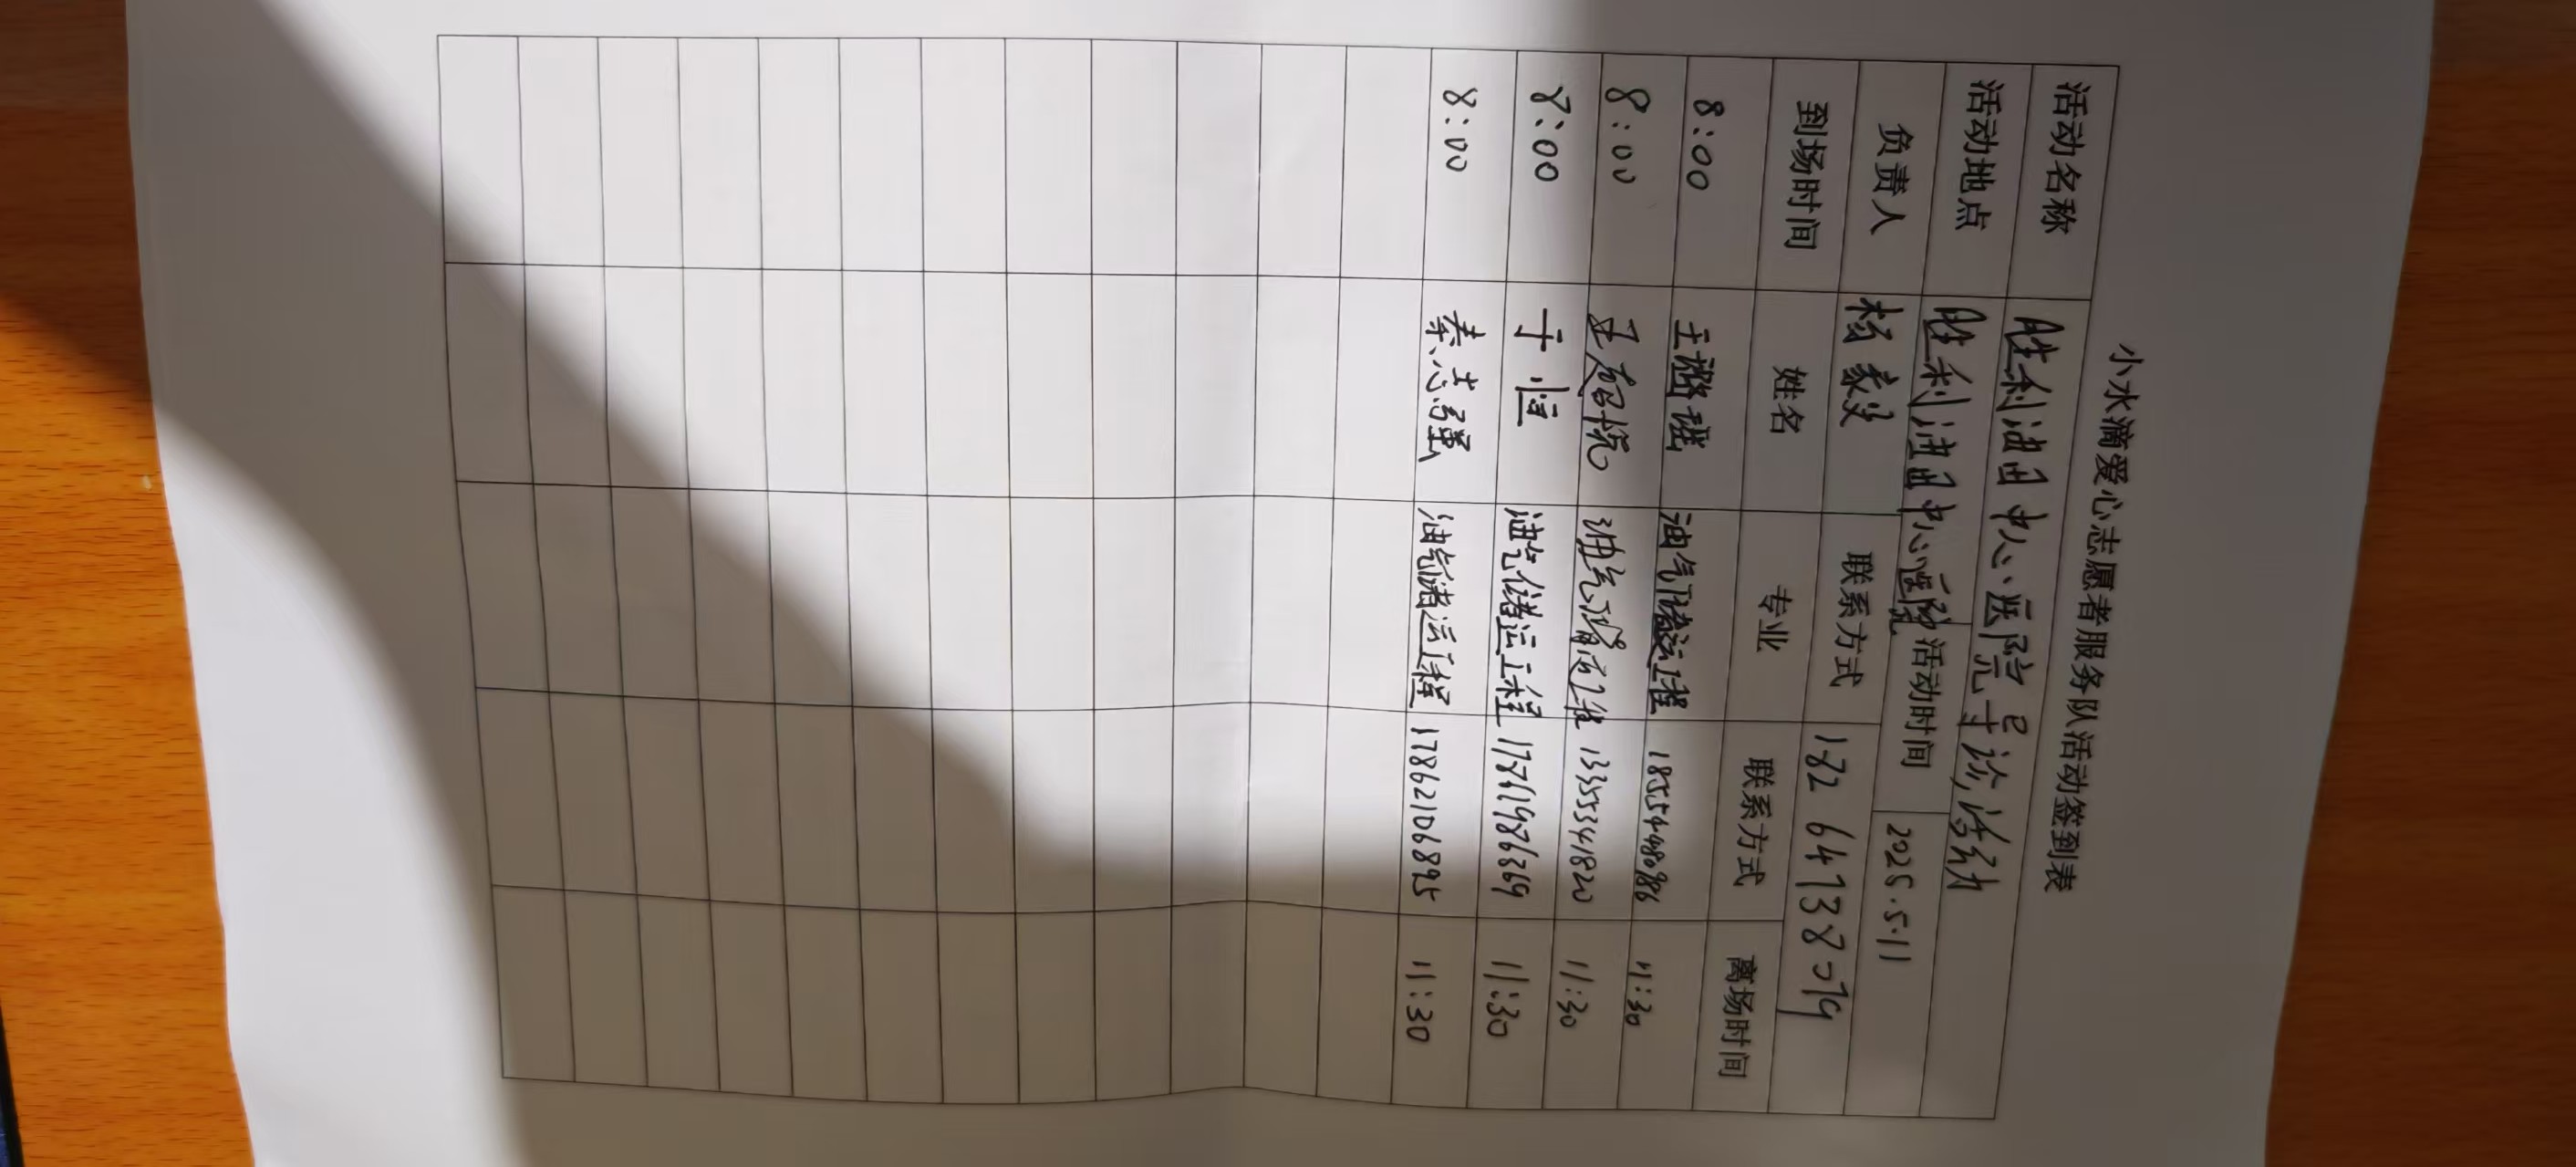 小水滴爱心志愿者服务队活动签到表
活动名称 胜利油田中心医院导诊活动
活动地点 胜利油田中心医院 活动时间 2025.5.11
负责人 杨家 联系方式
到场时间 姓名 专业 联系方式 离场时间
8:00 王潞瑶 油气储运工程 18554480986 11:30
8:00 油气储运工程 13355341820 11:30
8:00 于恒 油气储运工程 17861986369 11:30
8:00 秦志强 油气储运工程 17862106895 11:30